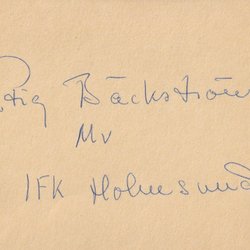 Stig Bäckström
Mv
IFK Holmsund